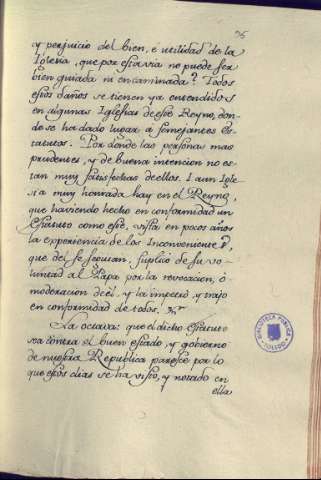 y perjuicio del bien, e utilidad de la
Iglesia, que por esta via no puede ser
bien guiada ni encaminada? Todos
estos daños se tienen ya entendidos
en algunas Iglesias de este Reyno, don-
de se ha dado lugar a semejantes Es-
tatutos. Por donde las personas mas
prudentes, y de buena intencion no es-
tan muy satisfechas dellos. I aun Igle-
sia muy honrada hay en el Reyno,
que haviendo hecho en conformidad un
Estatuto como este, vista en pocos años
la experiencia de los Inconvenientes,
que del se seguian, suplicó de su vo-
luntad al Papa por la revocacion, ó
moderacion de él, y la impetró, y trajo
en conformidad de todos.
La octava: que el dicho Estatuto
sea contra el buen estado, y gobierno
de nuestra Republica paresce por lo
que estos dias se ha visto, y notado en
ella
BIBLIOTECA PUBLICA
TOLEDO